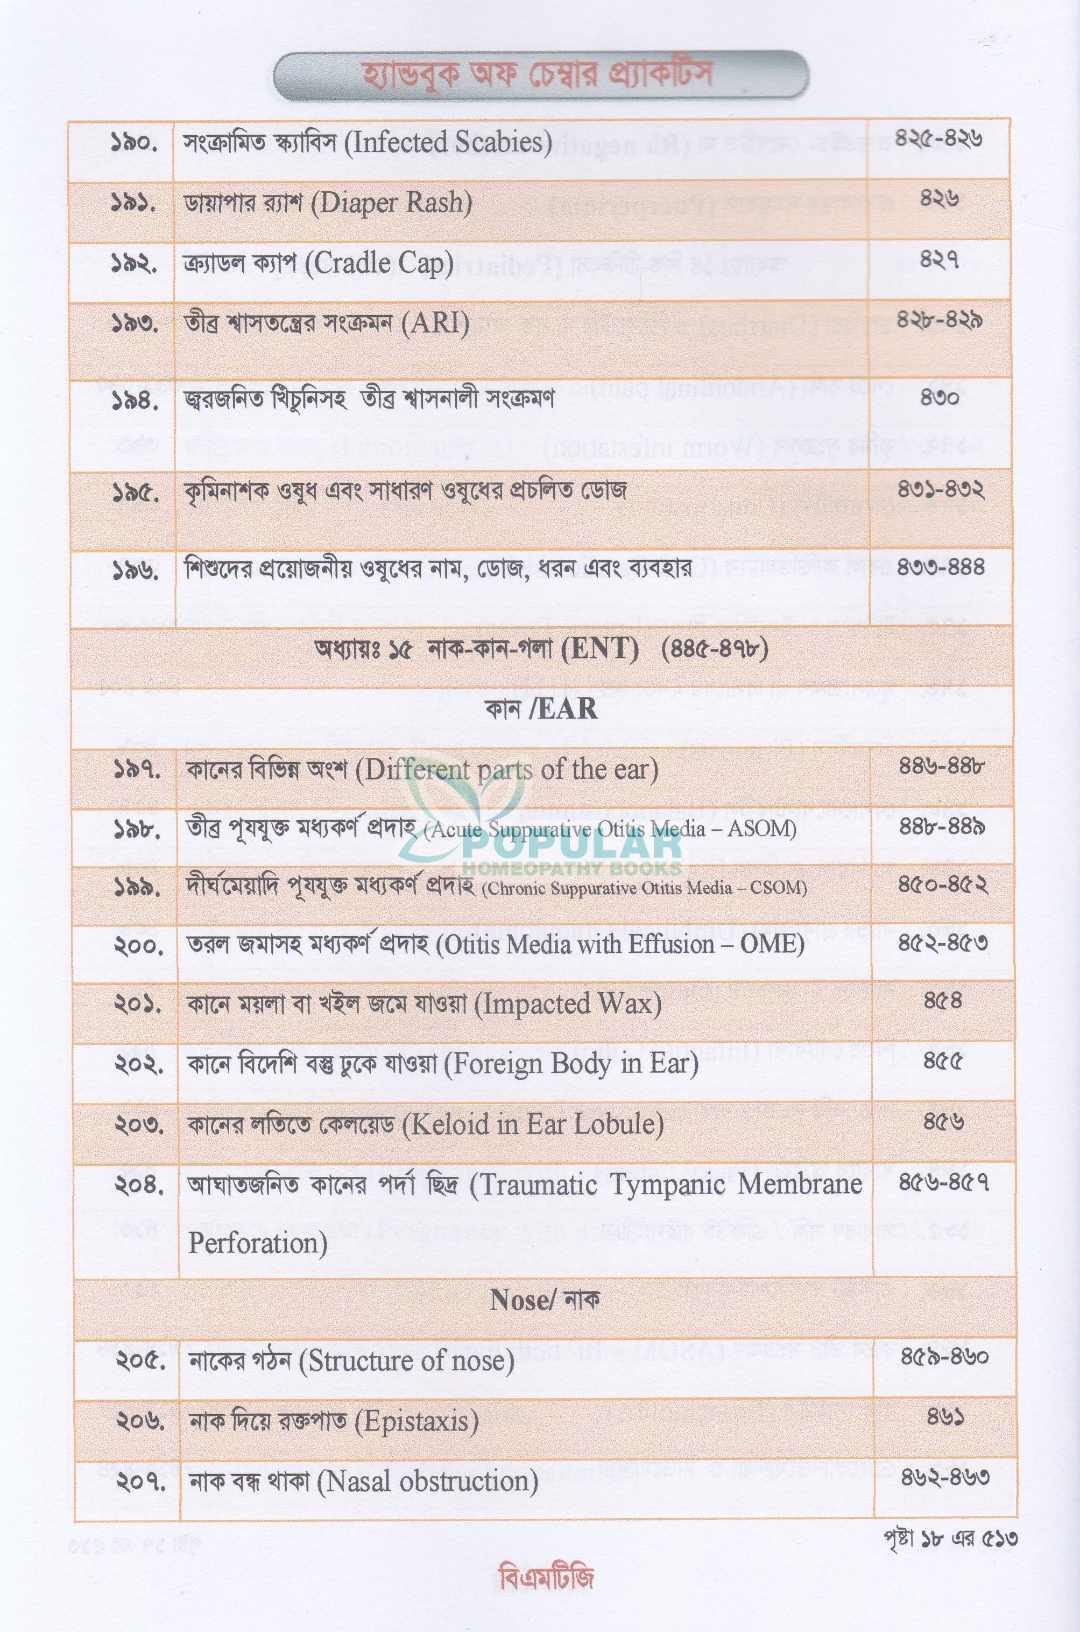 হ্যান্ডবুক অফ চেম্বার প্র্যাকটিস
১৯০. সংক্রামিত স্ক্যাবিস (Infected Scabies) ৪২৫-৪২৬
১৯১. ডায়াপার র‍্যাশ (Diaper Rash) ৪২৬
১৯২. ক্র্যাডল ক্যাপ (Cradle Cap) ৪২৭
১৯৩. তীব্র শ্বাসতন্ত্রের সংক্রমন (ARI) ৪২৮-৪২৯
১৯৪. জ্বরজনিত খিঁচুনিসহ তীব্র শ্বাসনালী সংক্রমণ ৪৩০
১৯৫. কৃমিনাশক ওষুধ এবং সাধারণ ওষুধের প্রচলিত ডোজ ৪৩১-৪৩২
১৯৬. শিশুদের প্রয়োজনীয় ওষুধের নাম, ডোজ, ধরন এবং ব্যবহার ৪৩৩-৪৪৪
অধ্যায়ঃ ১৫ নাক-কান-গলা (ENT) (৪৪৫-৪৭৮)
কান /EAR
১৯৭. কানের বিভিন্ন অংশ (Different parts of the ear) ৪৪৬-৪৪৮
১৯৮. তীব্র পূযযুক্ত মধ্যকর্ণ প্রদাহ (Acute Suppurative Otitis Media – ASOM) ৪৪৮-৪৪৯
POPULAR
HOMEOPATHY BOOKS
১৯৯. দীর্ঘমেয়াদি পূযযুক্ত মধ্যকর্ণ প্রদাহ (Chronic Suppurative Otitis Media – CSOM) ৪৫০-৪৫২
২০০. তরল জমাসহ মধ্যকর্ণ প্রদাহ (Otitis Media with Effusion – OME) ৪৫২-৪৫৩
২০১. কানে ময়লা বা খইল জমে যাওয়া (Impacted Wax) ৪৫৪
২০২. কানে বিদেশি বস্তু ঢুকে যাওয়া (Foreign Body in Ear) ৪৫৫
২০৩. কানের লতিতে কেলয়েড (Keloid in Ear Lobule) ৪৫৬
২০৪. আঘাতজনিত কানের পর্দা ছিদ্র (Traumatic Tympanic Membrane ৪৫৬-৪৫৭
Perforation)
Nose/ নাক
২০৫. নাকের গঠন (Structure of nose) ৪৫৯-৪৬০
২০৬. নাক দিয়ে রক্তপাত (Epistaxis) ৪৬১
২০৭. নাক বন্ধ থাকা (Nasal obstruction) ৪৬২-৪৬৩
পৃষ্টা ১৮ এর ৫১৩
বিএমটিজি